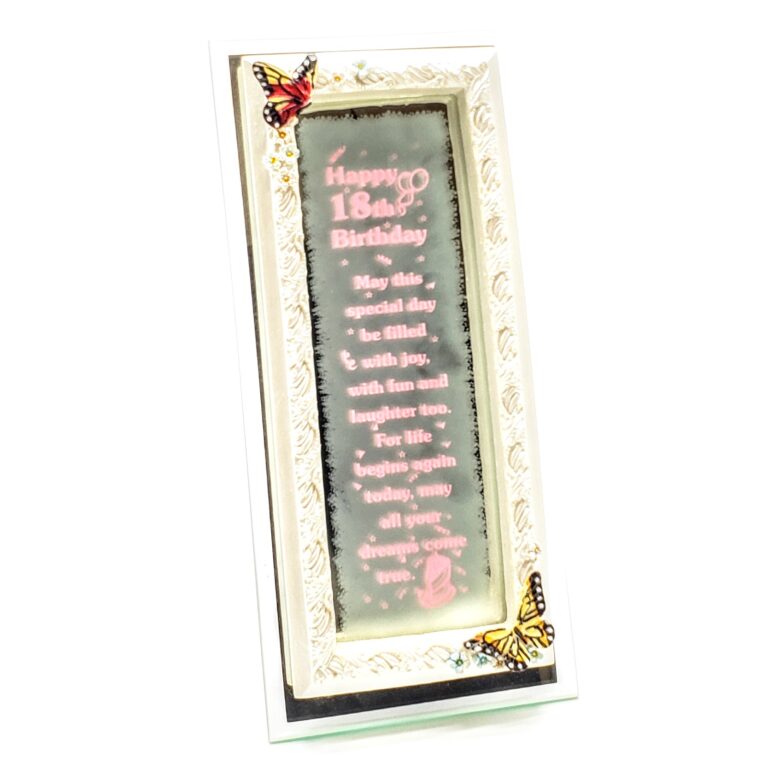 Happy
18th
Birthday
May this
special day
be filled
with joy,
with fun and
laughter too.
For life
begins again
today, may
all your
dreams come
true.